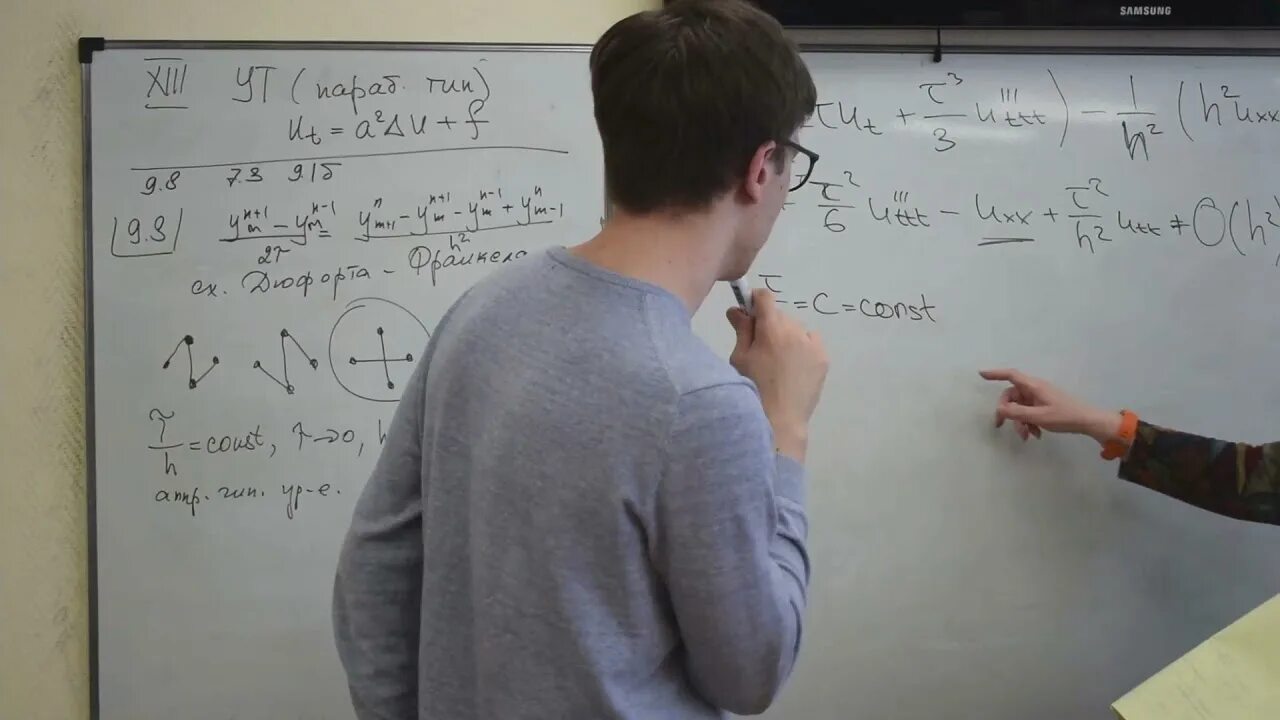 SAMSUNG
XIII УТ (параб. тип)
u_t = a²Δu + f
9.8 7.3 9.15
9.3 (y_m^{n+1} - y_m^{n-1})/2τ = (y_{m+1}^n - y_m^{n+1} - y_m^{n-1} + y_{m-1}^n)/h²
сх. Дюфорта - Франкела
τ/h = const, τ→0, h
аппр. гип. ур-е.
τu_t + τ³/3 u'''_{ttt}) - 1/h² (h²u_{xx}
τ²/6 u'''_{ttt} - u_{xx} + τ²/h² u_{tt} + O(h²
τ = C = const